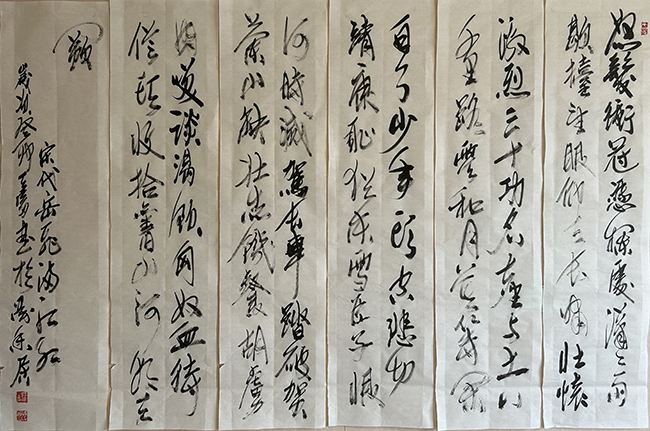 怒髮衝冠憑欄處瀟々雨
歇擡望眼仰天長嘯壯懷
激烈三十功名塵與土八
千里路雲和月莫等閒
白了少年頭空悲切
靖康恥猶未雪臣子恨
何時滅駕長車踏破賀
蘭山缺壯志飢餐胡虜
肉笑談渴飲匈奴血待
從頭收拾舊山河朝天
闕
宋代岳飛滿江紅
歲次癸卯書於居